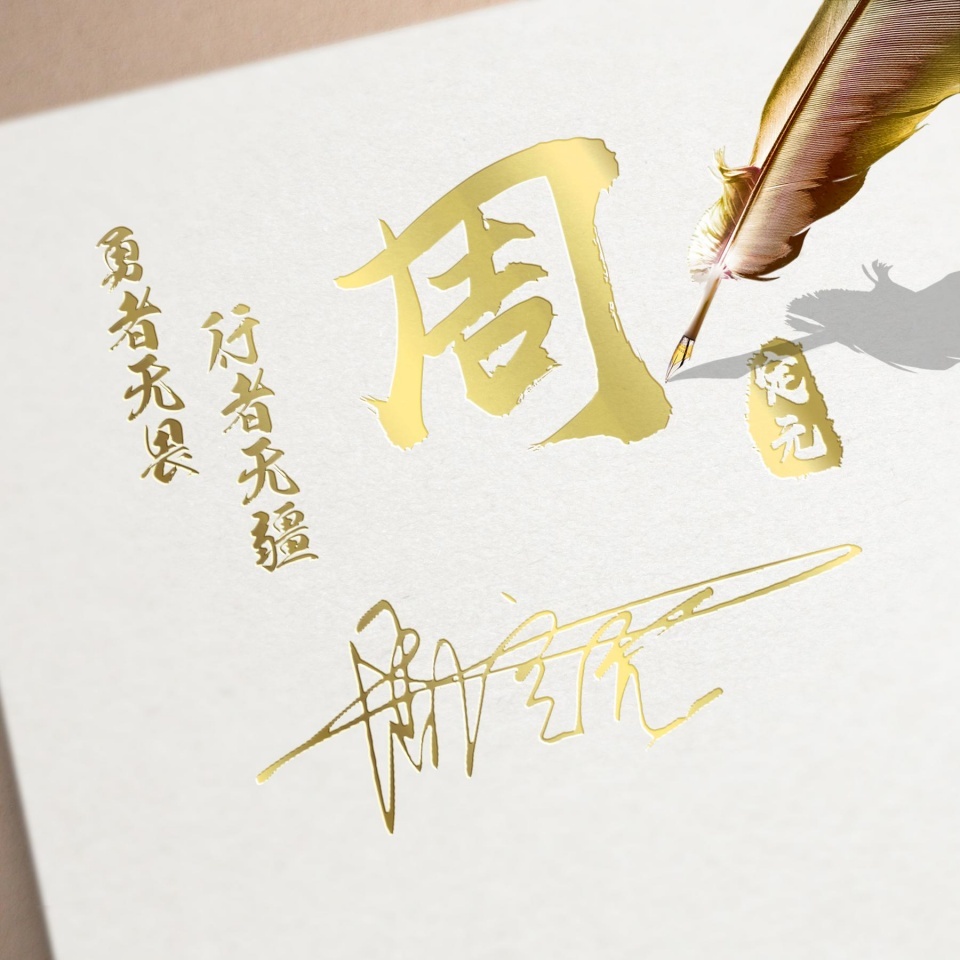 周
勇者无畏
行者无疆
定元